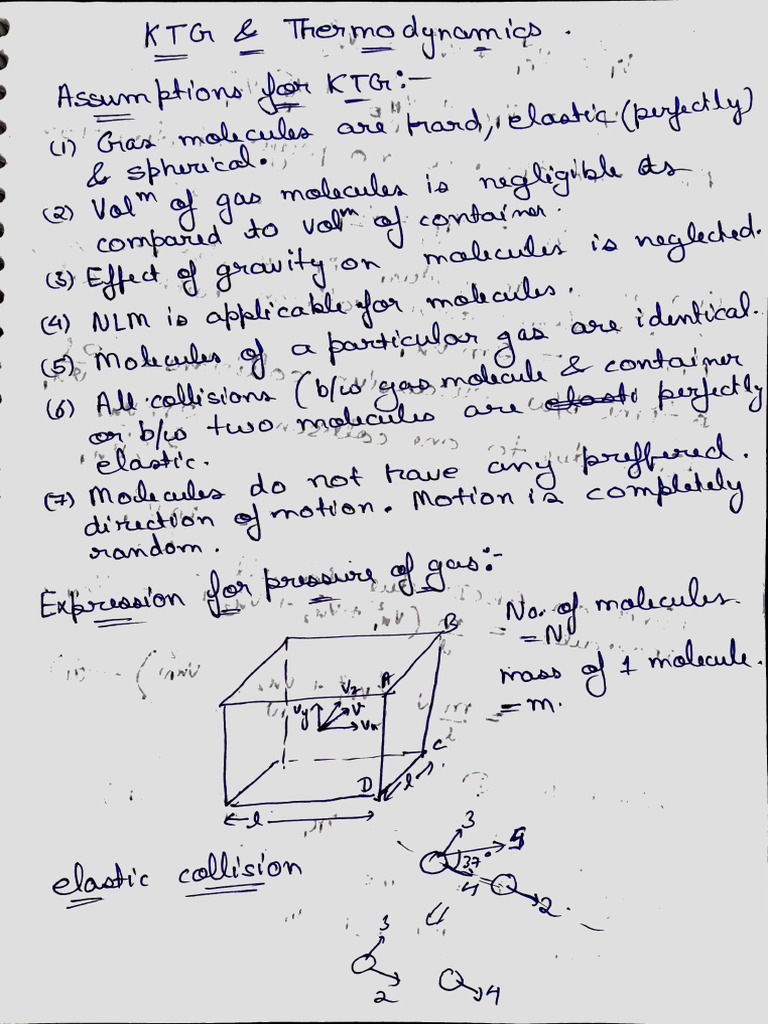 KTG & Thermodynamics.
Assumptions for KTG:-
(1) Gas molecules are hard, elastic (perfectly)
& spherical.
(2) Volm of gas molecules is negligible as
compared to volm of container.
(3) Effect of gravity on molecules is neglected.
(4) NLM is applicable for molecules.
(5) Molecules of a particular gas are identical.
(6) All collisions (b/w gas molecule & container
or b/w two molecules are elasti perfectly
elastic.
(7) Molecules do not have any preffered.
direction of motion. Motion is completely
random.
Expression for pressure of gas:-
No. of molecules
= N
mass of 1 molecule.
= m.
B
A
vz
vy
v
vx
C
D
l
l
elastic collision
3
5
37°
4
2
3
2
4